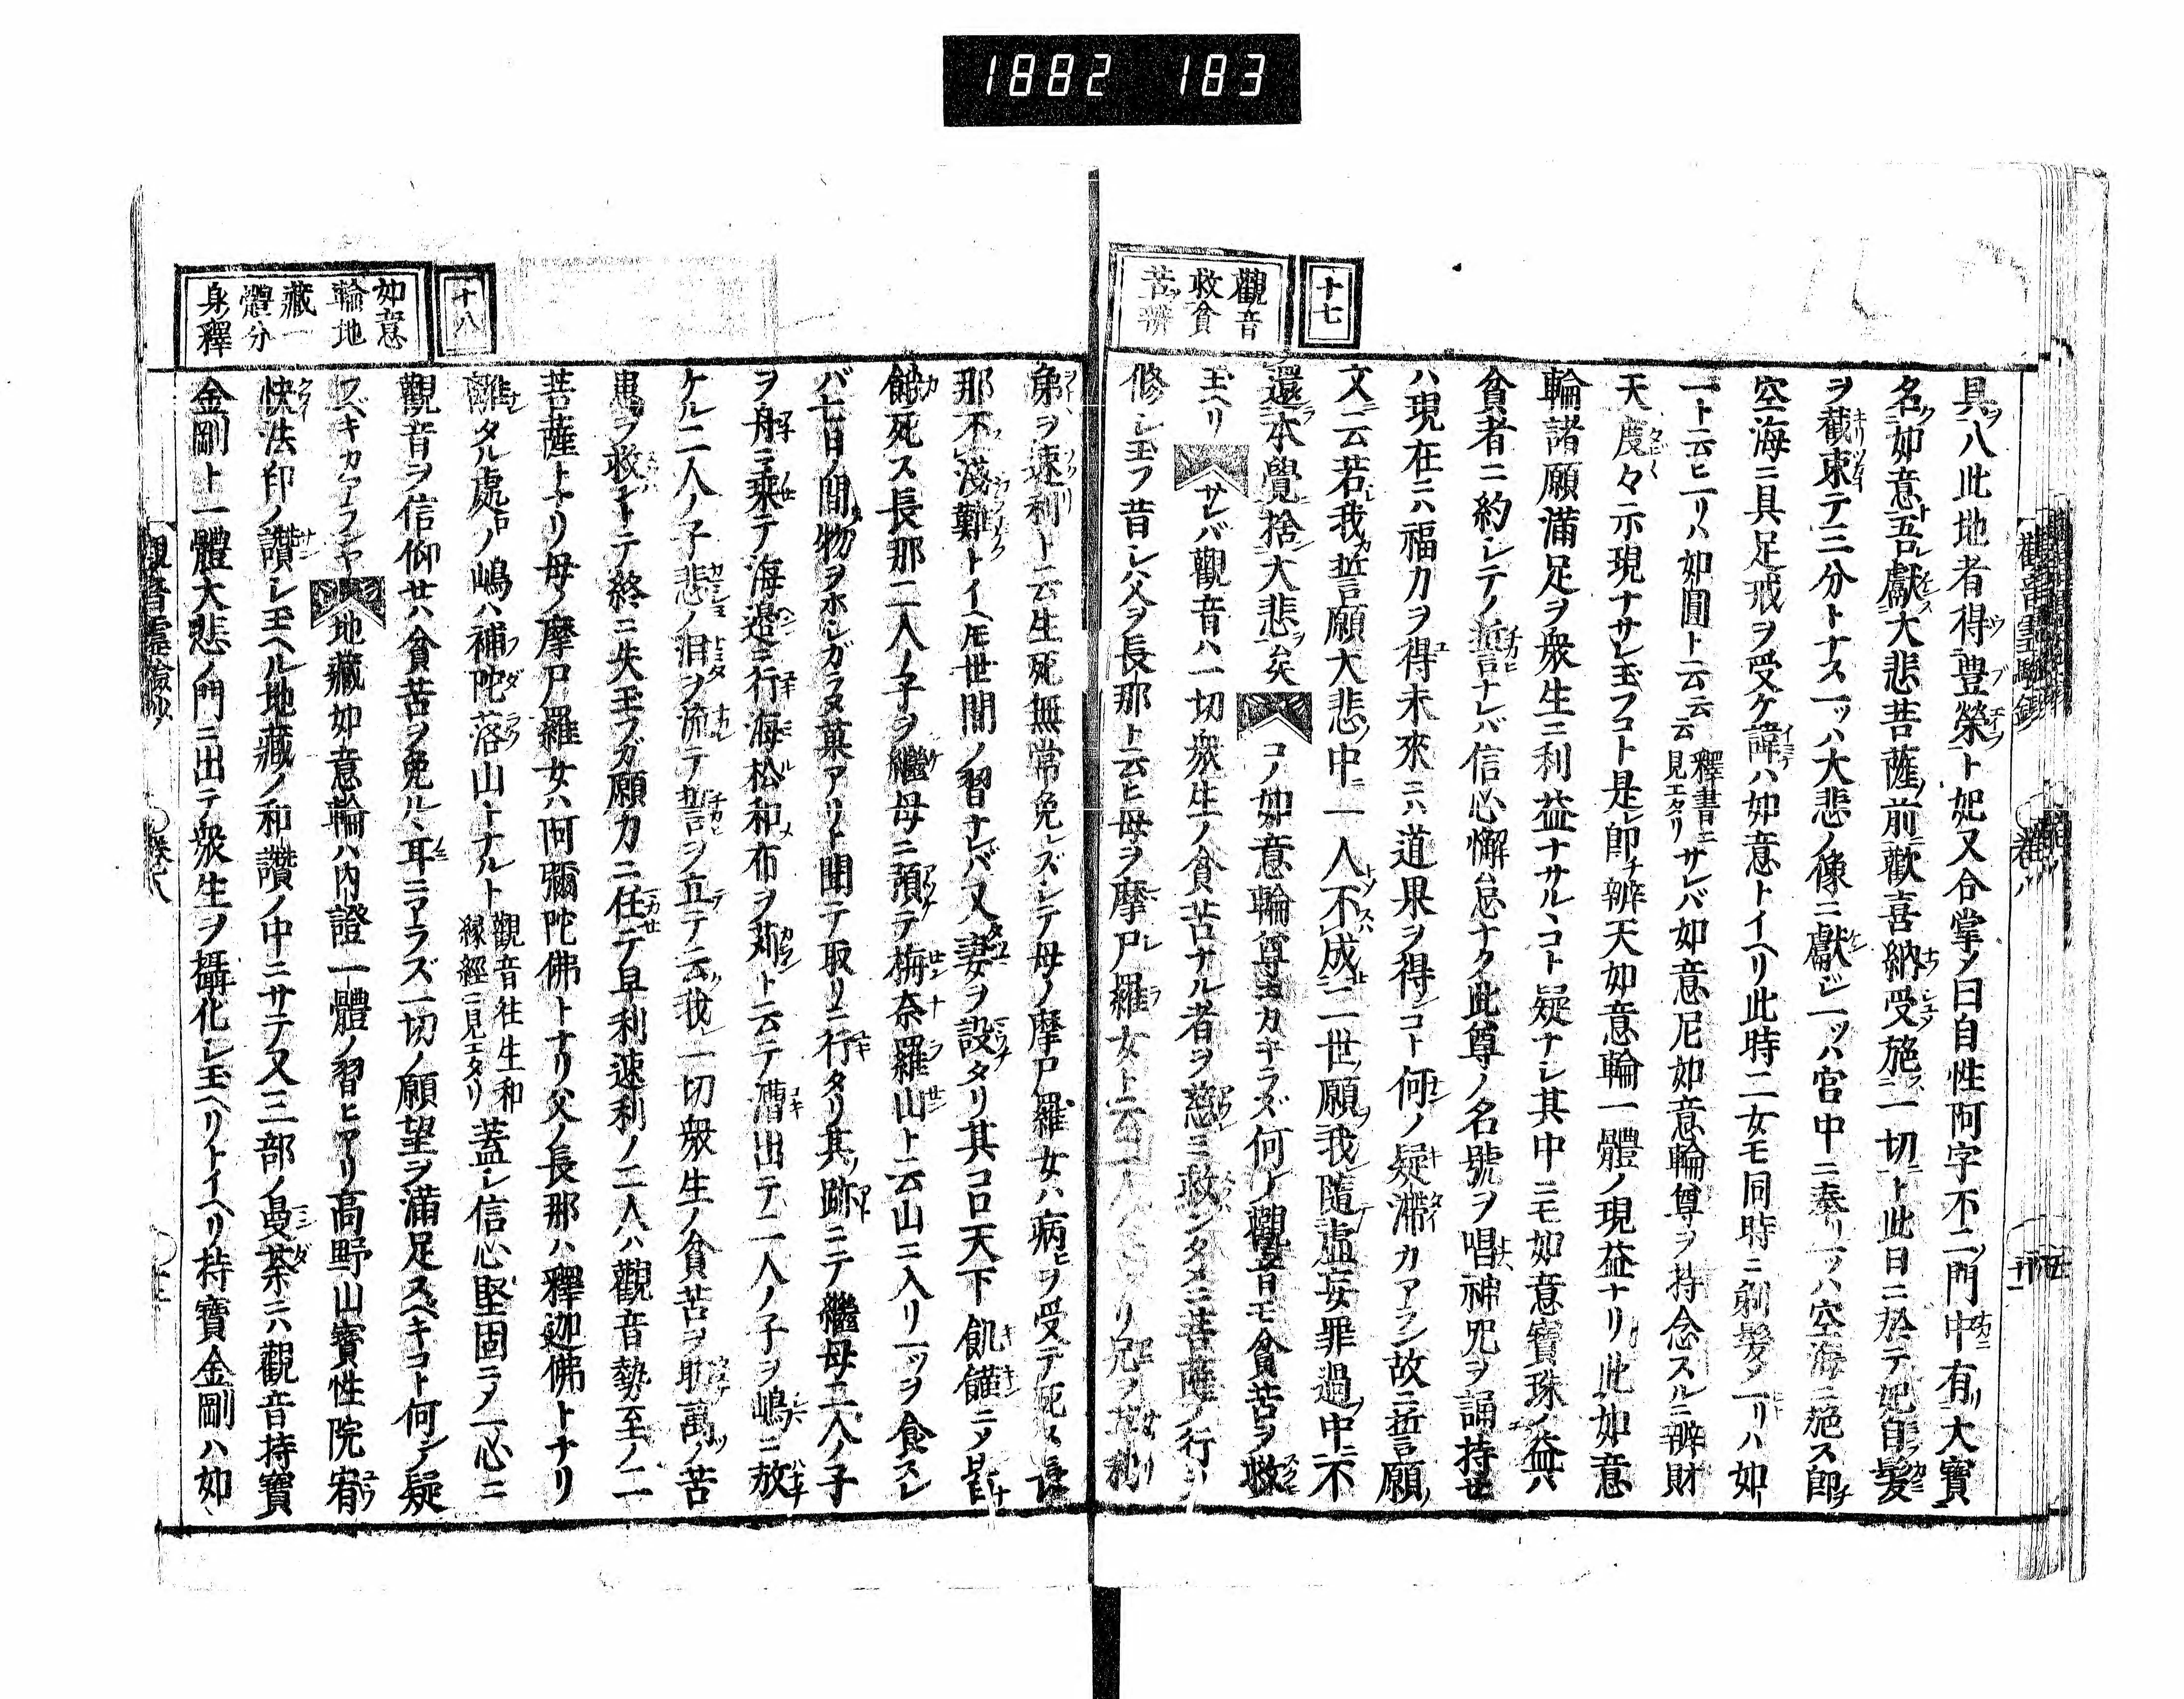 1882 183
十七
觀音
救貧
苦辨
具ヲ八此地者得豊榮ト妃又合掌ノ曰自性阿字不二門中有リ大寶
名如意吾レ獻大悲菩薩ノ前ニ歡喜納受施ス一切ニト此日ニ於テ妃自ラ髪
ヲ截束テ三分トナス一ツハ大悲ノ像ニ獻ジ一ツハ宮中ニ奏リ一ツハ空海ニ施ス即チ
空海ニ具足戒ヲ受ケ諱ハ如意トイヘリ此時二女モ同時ニ剃髪シ一リハ如
一ト云ヒ一リハ如圓ト云云云釋書ニ見エタリサレバ如意尼如意輪尊ヲ持念スルニ辨財
天度々ニ示現ナサレ玉フコト是レ即チ辨天如意輪一體ノ現益ナリ此如意
輪諸願滿足ヲ衆生ニ利益ナサルヽコト疑ナシ其中ニモ如意寶珠ノ益ハ
貧者ニ約シテノ誓ナレバ信心懈怠ナク此尊ノ名號ヲ唱ヘ神咒ヲ誦持せ
ハ現在ニハ福力ヲ得未來ニハ道果ヲ得ンコト何ノ疑滯カアラン故ニ誓願ノ
文ニ云若我レ誓願大悲ノ中ニ一人不成二世願我レ隨虚妄罪過中不
還本覺捨大悲ヲ矣コノ如意輪尊ニカキラズ何レノ觀音モ貧苦ヲ救
玉ヘリサレバ觀音ハ一切衆生ノ貧苦ナル者ヲ慈ミ救ンタメニ菩薩ノ行ヲ
修シ玉フ昔シハ父ヲ長那ト云ヒ母ヲ摩尸羅女ト云
弟ヲ速利ト云生死無常免レズシテ母ノ摩尸羅女ハ病ヒヲ受テ死ス長
那不淺難トイヘ𪜈世間ノ習ナレバ又妻ヲ設タリ其コロ天下飢饉ニメ皆
餓死ス長那二人ノ子ヲ繼母ニ預テ栴奈羅山ト云山ニ入リ一ツヲ食スレ
バ七日ノ間物ヲホシガラヌ菓アリト聞テ取リニ行タリ其ノ跡ニテ繼母二人ノ子
ヲ舟ニ乘せテ海邊ニ行海松和布ヲ苅ント云テ漕出テ二人ノ子ヲ嶋ニ放
ケル二人ノ子悲ノ泪ヲ流シテ誓ヲ立テ云ク我レ一切衆生ノ貧苦ヲ助萬ノ苦
患ヲ救ントテ終ニ失玉フガ願力ニ任せテ早利速利ノ二人ハ觀音勢至ノ二
菩薩トナリ母ノ摩尸羅女ハ阿彌陀佛トナリ父ノ長那ハ釋迦佛トナリ
離タル處ロノ嶋ハ補陀落山トナルト觀音往生和縁經ニ見エタリ蓋シ信心堅固ニメ一心ニ
觀音ヲ信仰せハ貧苦ヲ免ルヽ耳ニアラズ一切ノ願望ヲ滿足スヘキコト何ンノ疑
フベキカアランヤ地藏如意輪ハ内證一體ノ習ヒアリ高野山寳性院宥
快法印ノ讃シ玉ヘル地藏ノ和讃ノ中ニサテ又三部ノ曼荼ニハ觀音持寶
金剛ト一體大悲ノ門ニ出テ衆生ヲ攝化シ玉ヘリトイヘリ持寶金剛ハ如
十八
如意
輪地
藏一
體分
身釋